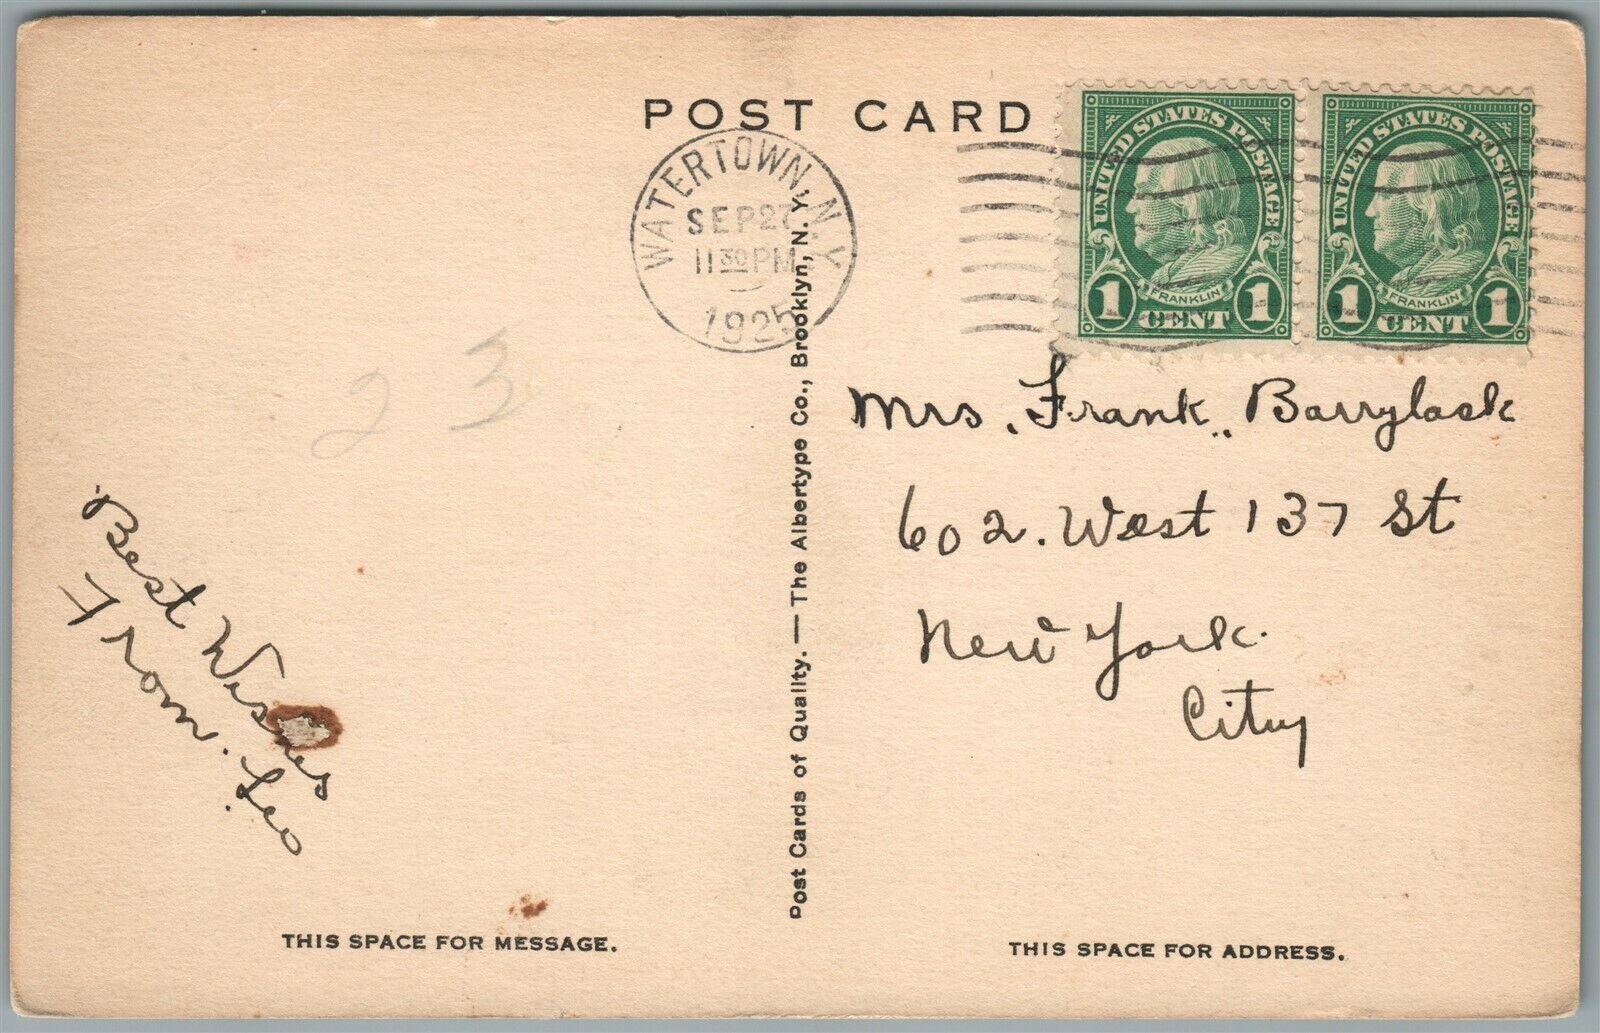 POST CARD
WATERTOWN, N.Y.
SEP 27
11 30 PM
1925
UNITED STATES POSTAGE
FRANKLIN
1 CENT 1
UNITED STATES POSTAGE
FRANKLIN
1 CENT 1
23
Best Wishes
From. Leo
Post Cards of Quality. — The Albertype Co., Brooklyn, N. Y.
Mrs. Frank. Barrylask
602. West 137 St
New York.
City
THIS SPACE FOR MESSAGE.
THIS SPACE FOR ADDRESS.